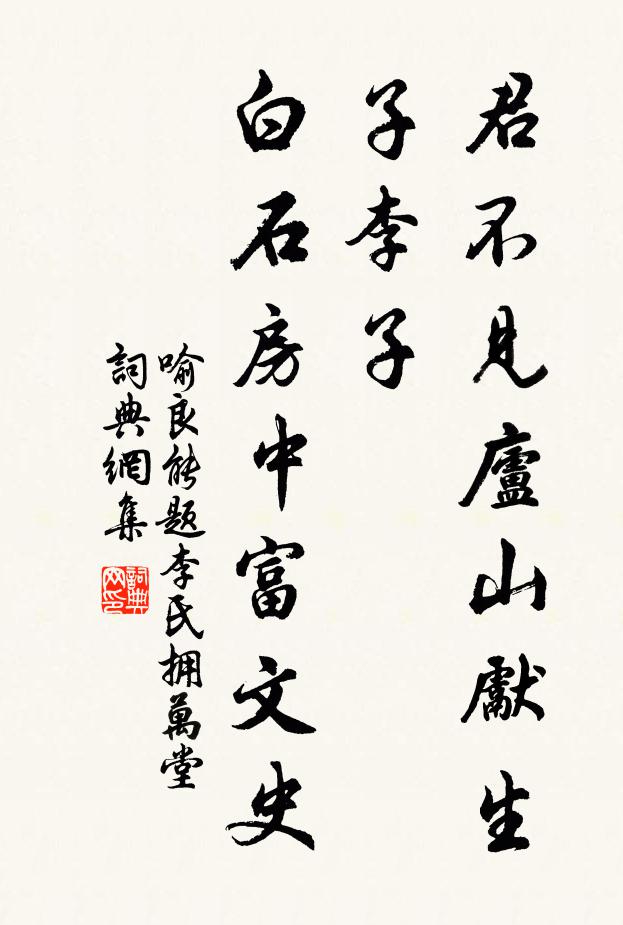 君不見廬山獻生
子李子
白石房中富文史
喻良能題李氏拥萬堂
詞典網集
詞典網印